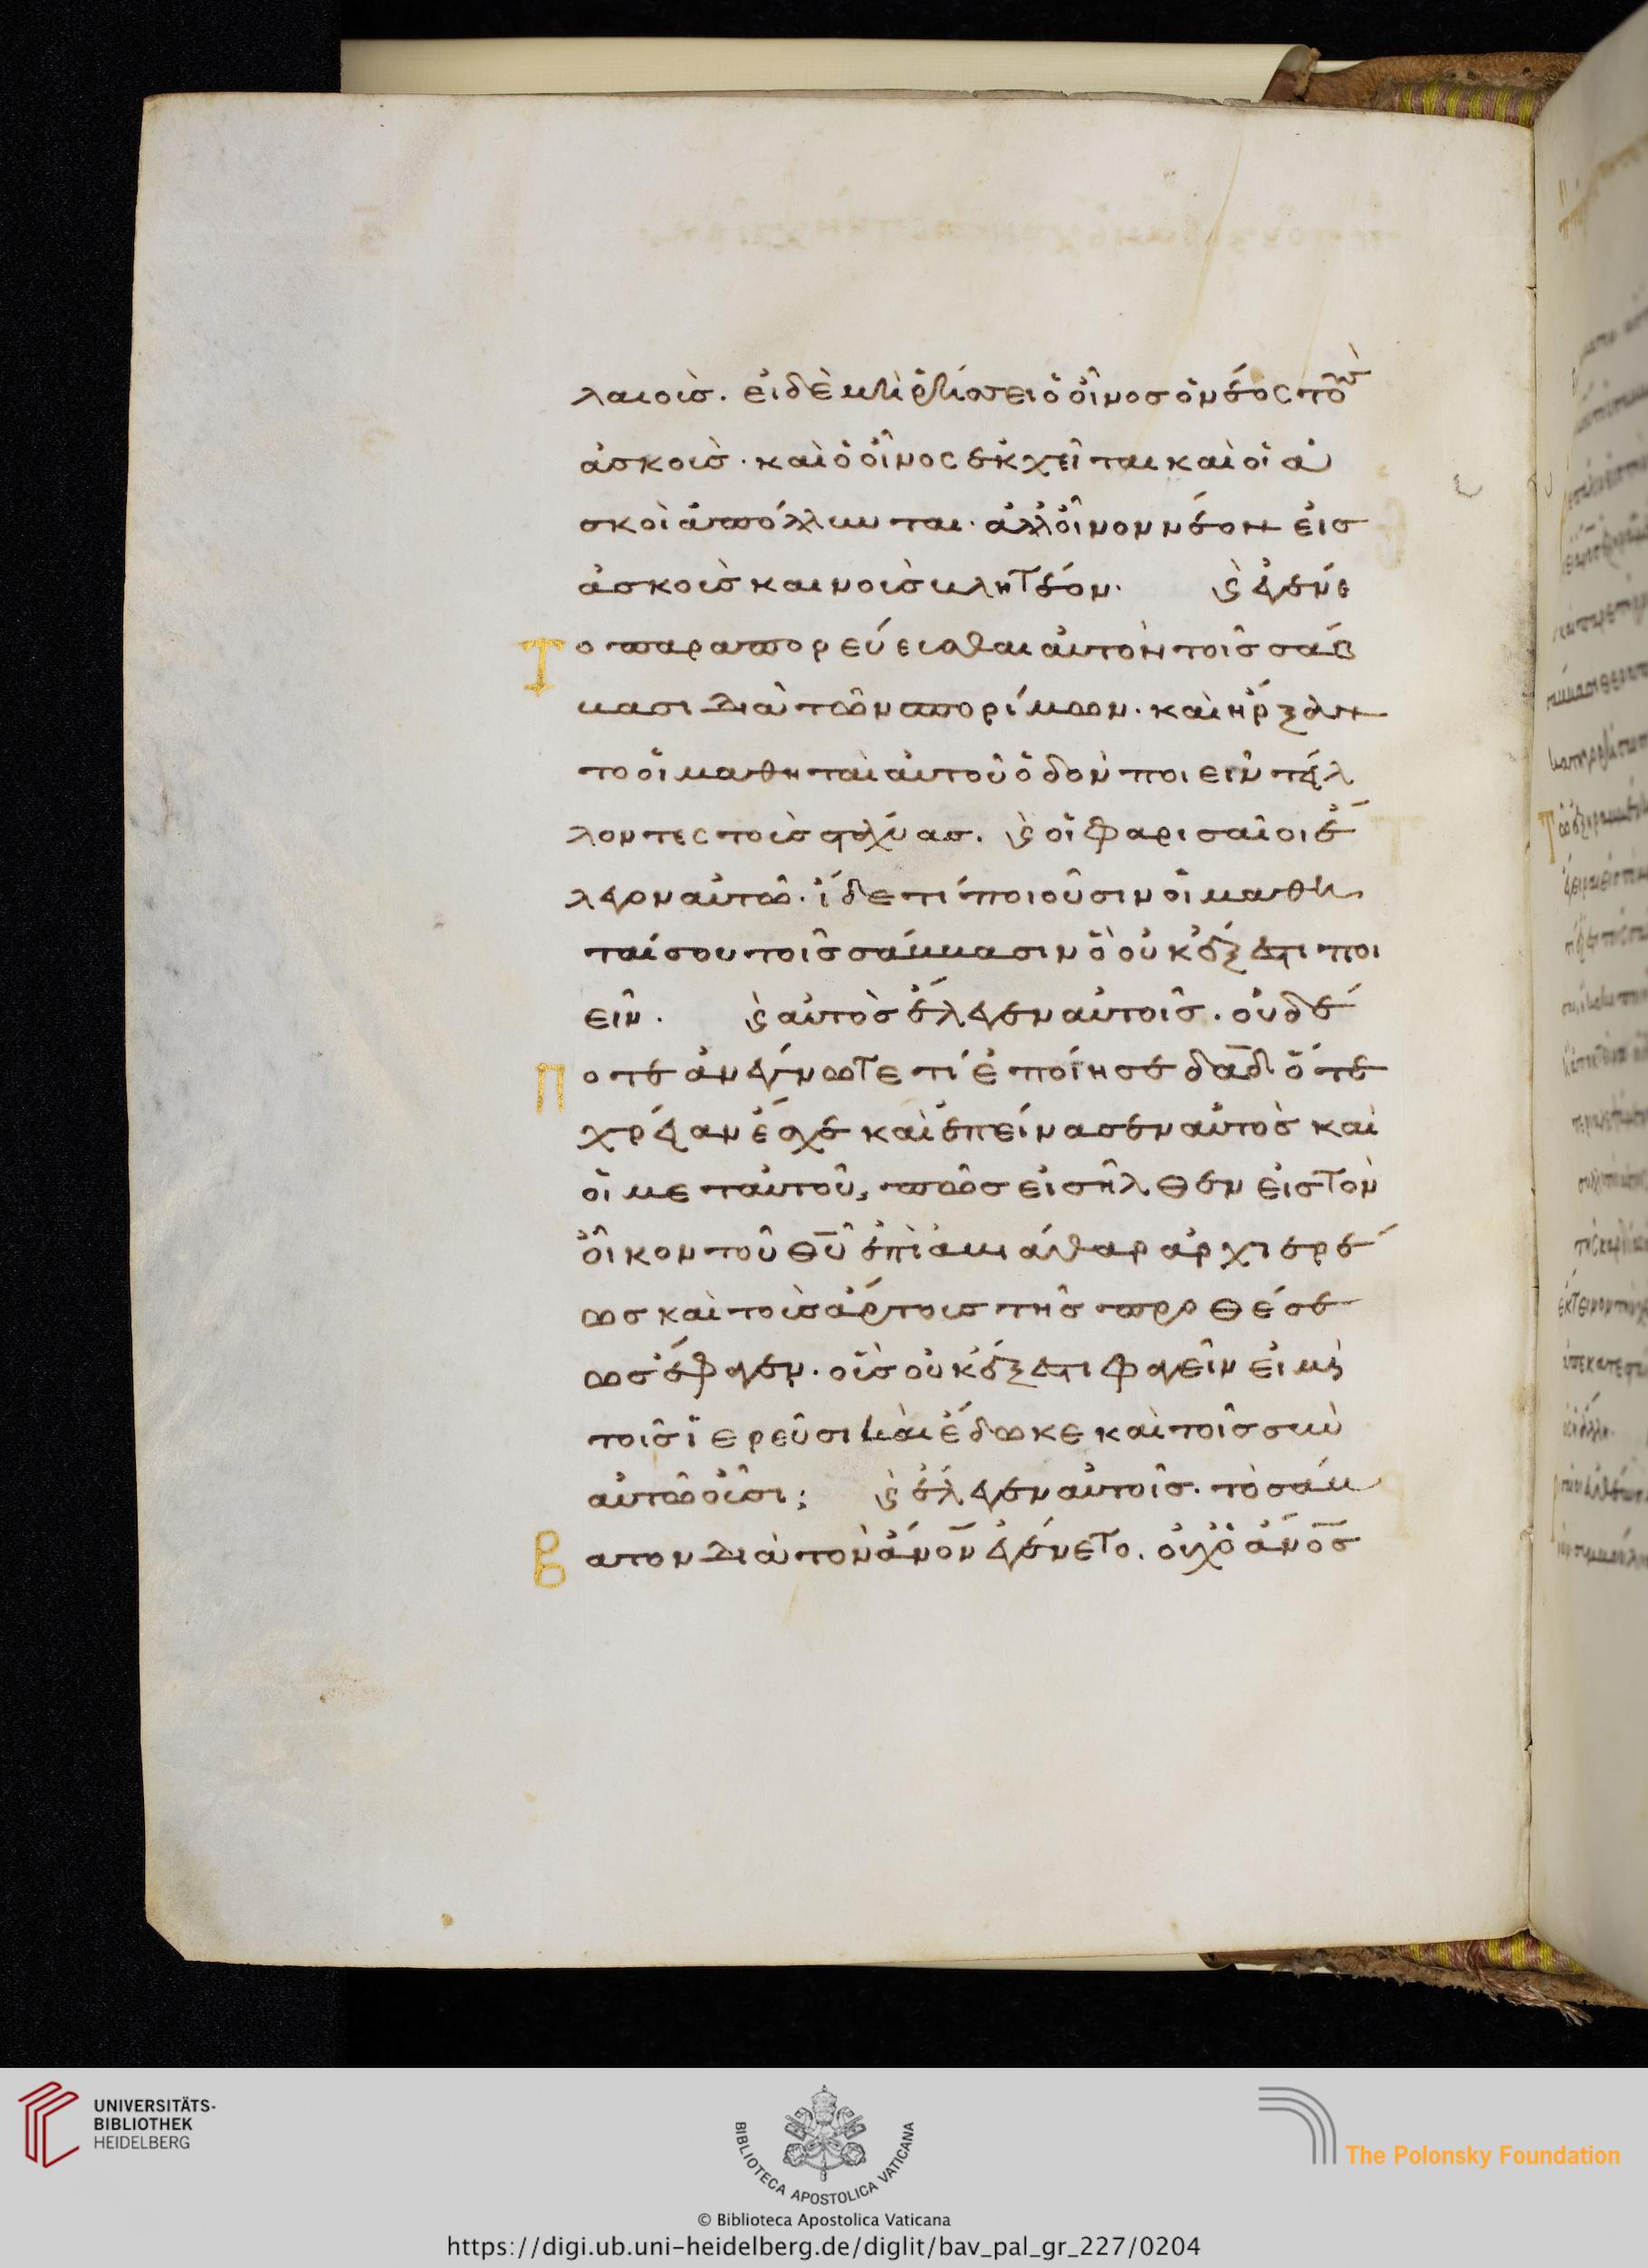 λαιοὺσ. εἰ δὲ μὴ ῥήσσει ὁ οἶνοσ ὁ νέος τοὺ
ἀσκοὺσ· καὶ ὁ οἶνος ἐκχεῖται καὶ οἱ ἀ
σκοὶ ἀπόλλυνται· ἀλλ οἶνον νέον εἰσ
ἀσκοὺσ καινοὺσ βλητέον· ϗ ἐγένε
Το παραπορεύεσθαι αὐτὸν τοῖσ σάβ
βασι διὰ τῶν σπορίμων· καὶ ἤρξαν
το οἱ μαθηταὶ αὐτοῦ ὁδὸν ποιεῖν τίλ
λοντες τοὺσ στάχυασ. ϗ οἱ φαρισαῖοι ἔ
λεγον αὐτῶ· ἴδε τί ποιοῦσιν οἱ μαθη
ταί σου τοῖσ σάββασιν ὃ οὐκ ἔξεστι ποι
εῖν. ϗ αὐτὸσ ἔλεγεν αὐτοῖσ. οὐδέ
Ποτε ἀνέγνωτε τί ἐποίησε δαδ ὅτε
χρείαν ἔσχε καὶ ἐπείνασεν αὐτὸσ καὶ
οἱ μετ αὐτοῦ, πῶσ εἰσῆλθεν εἰσ τὸν
οἶκον τοῦ θυ ἐπὶ ἀβιάθαρ ἀρχιερέ
ωσ καὶ τοὺσ ἄρτουσ τῆσ προθέσε
ωσ ἔφαγεν· οὓσ οὐκ ἔξεστι φαγεῖν εἰ μὴ
τοῖσ ἱερεῦσι καὶ ἔδωκε καὶ τοῖσ σὺν
αὐτῶ οὖσι; ϗ ἔλεγεν αὐτοῖσ. τὸ σάβ
Βατον διὰ τὸν ἄνον ἐγένετο. οὐχ ὁ ἄνοσ
UNIVERSITÄTS-
BIBLIOTHEK
HEIDELBERG
BIBLIOTECA APOSTOLICA VATICANA
The Polonsky Foundation
© Biblioteca Apostolica Vaticana
https://digi.ub.uni-heidelberg.de/diglit/bav_pal_gr_227/0204